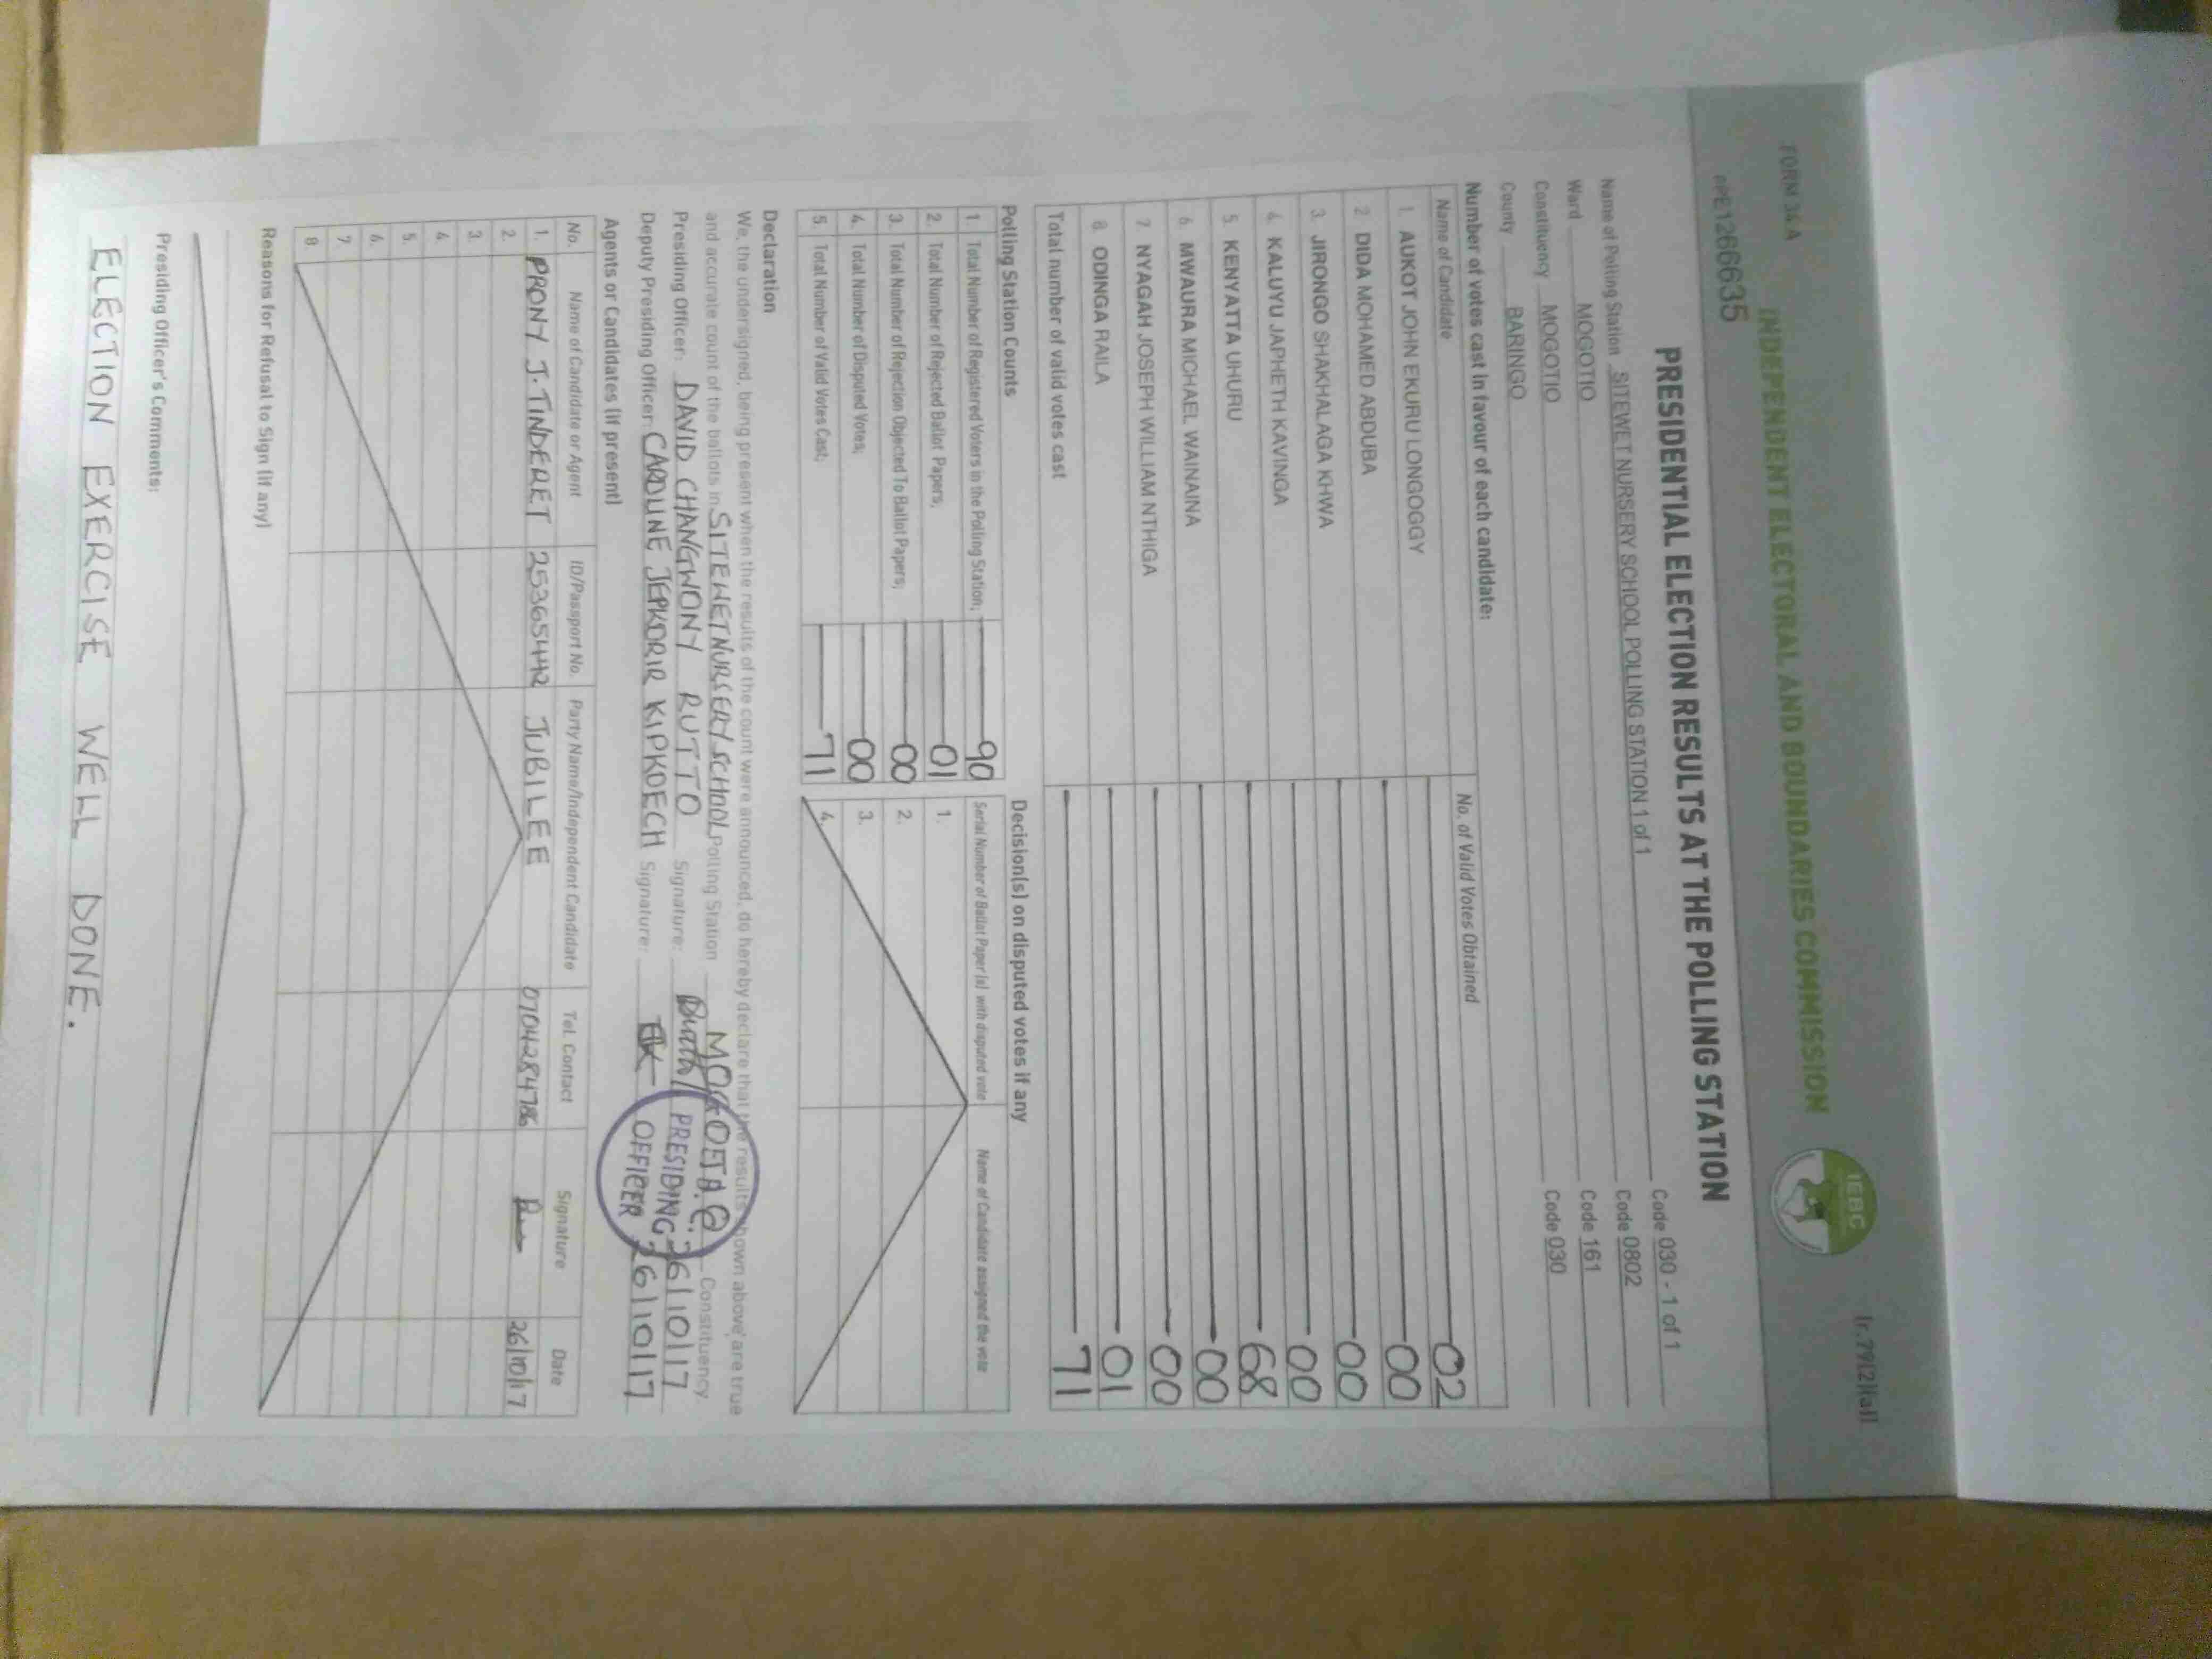 FORM 34A
(r.79(2)(a))
INDEPENDENT ELECTORAL AND BOUNDARIES COMMISSION
IEBC
PRESIDENTIAL ELECTION RESULTS AT THE POLLING STATION
Name of Polling Station SITEWET NURSERY SCHOOL POLLING STATION 1 of 1 Code 030 - 1 of 1
Ward MOGOTIO Code 0802
Constituency MOGOTIO Code 161
County BARINGO Code 030
Number of votes cast in favour of each candidate:
Name of Candidate No. of Valid Votes Obtained
1. AUKOT JOHN EKURU LONGOGGY 02
2. DIDA MOHAMED ABDUBA 00
3. JIRONGO SHAKHALAGA KHWA 00
4. KALUYU JAPHETH KAVINGA 00
5. KENYATTA UHURU 68
6. MWAURA MICHAEL WAINAINA 00
7. NYAGAH JOSEPH WILLIAM NTHIGA 00
8. ODINGA RAILA 01
Total number of valid votes cast 71
Polling Station Counts
1. Total Number of Registered Voters in the Polling Station; 90
2. Total Number of Rejected Ballot Papers; 01
3. Total Number of Rejection Objected To Ballot Papers; 00
4. Total Number of Disputed Votes; 00
5. Total Number of Valid Votes Cast; 71
Decision(s) on disputed votes if any
Serial Number of Ballot Paper(s) with disputed vote Name of Candidate assigned the vote
1.
2.
3.
4.
Declaration
We, the undersigned, being present when the results of the count were announced, do hereby declare that the results shown above are true
and accurate count of the ballots in SITEWET NURSERY SCHOOL Polling Station Constituency.
Presiding Officer: DAVID CHANGWONY RUTTO Signature: 26/10/17
Deputy Presiding Officer: CAROLINE JEPKORIR KIPKOECH Signature: 26/10/17
PRESIDING
OFFICER
Agents or Candidates (if present)
No. Name of Candidate or Agent ID/Passport No. Party Name/Independent Candidate Tel. Contact Signature Date
1. PRONY J. TINDERET 25365442 JUBILEE 0704284786 26/10/17
2.
3.
4.
5.
6.
7.
8.
Reasons for Refusal to Sign (if any)
Presiding Officer's Comments:
ELECTION EXERCISE WELL DONE.